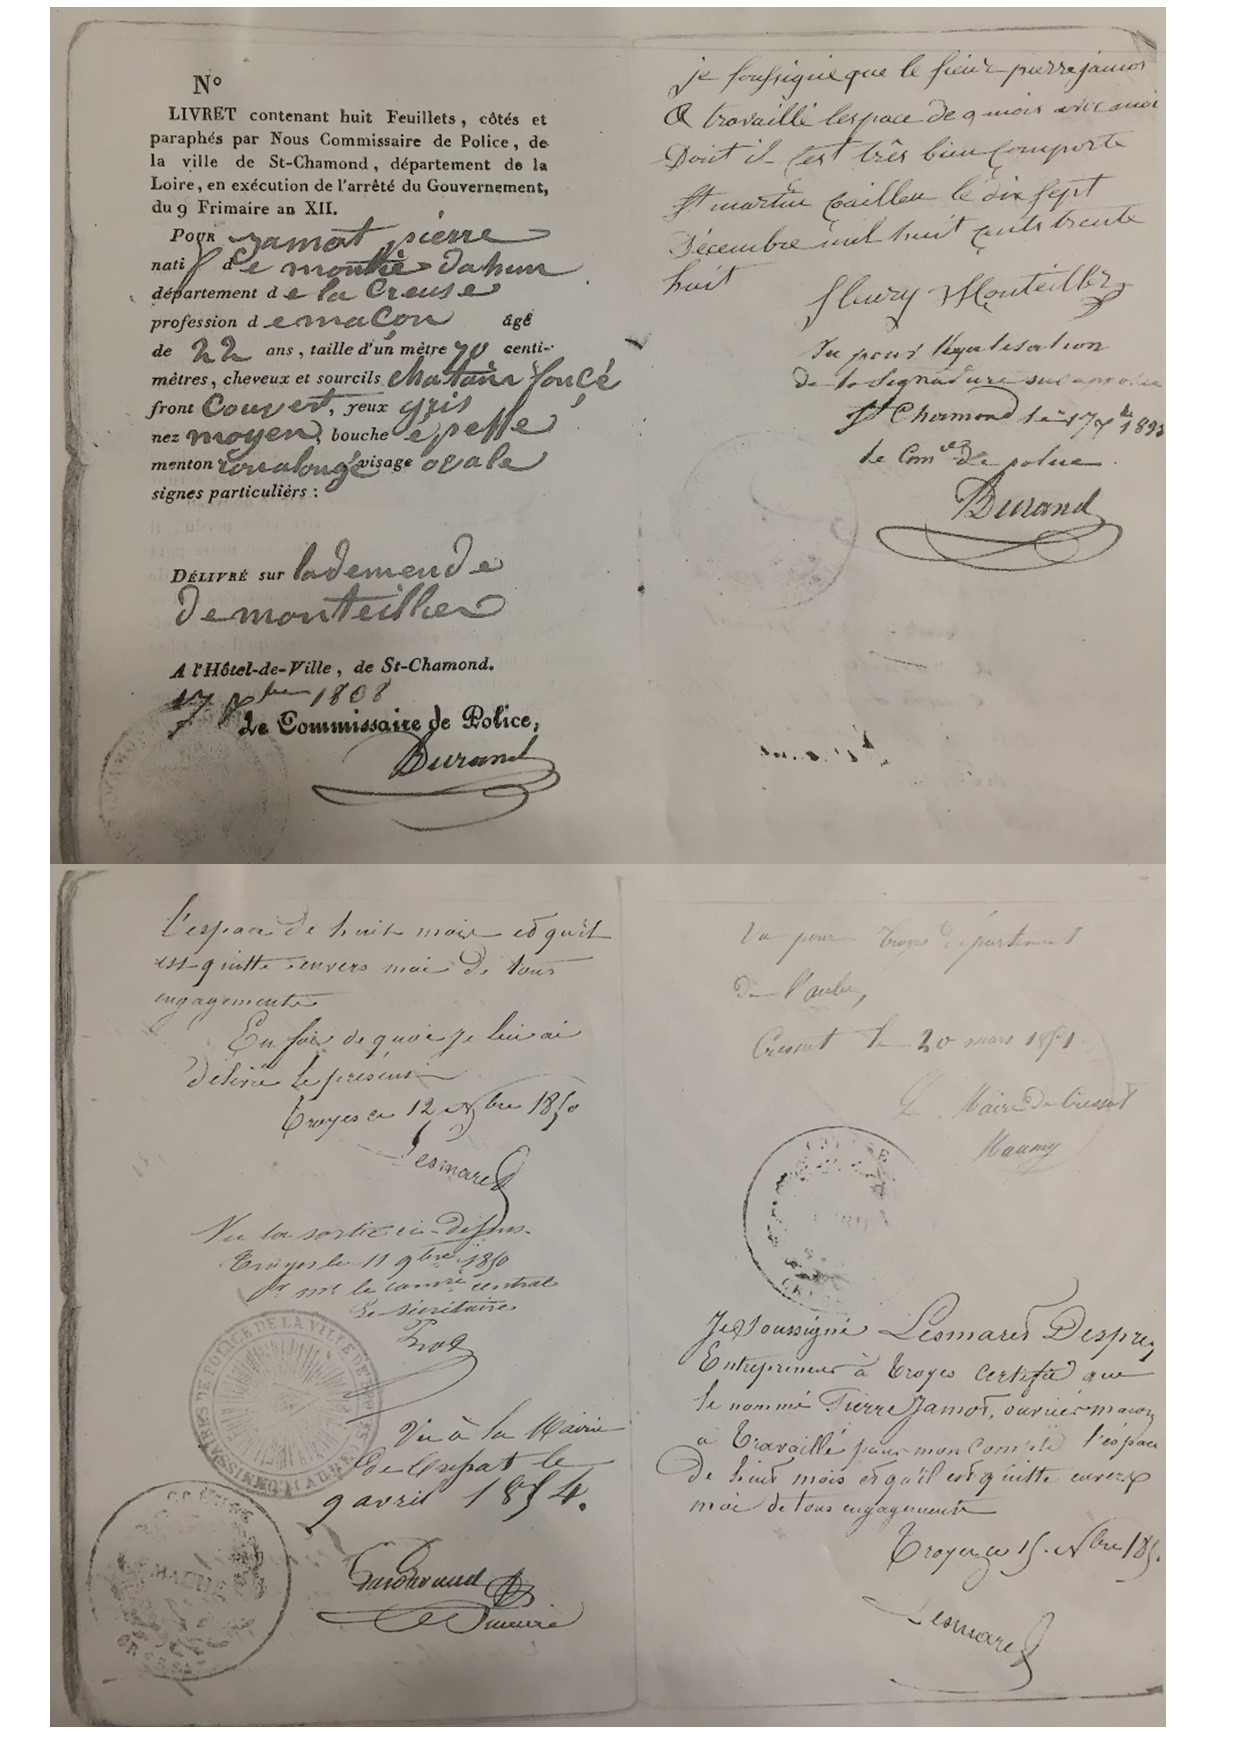 N°
LIVRET contenant huit Feuillets, côtés et
paraphés par Nous Commissaire de Police, de
la ville de St-Chamond, département de la
Loire, en exécution de l'arrêté du Gouvernement,
du 9 Frimaire an XII.
POUR jamot pierre
natif de montiè dahun
département de la Creuse
profession de maçon âgé
de 22 ans, taille d'un mètre 70 centi-
mètres, cheveux et sourcils chatain foncé
front Couvert, yeux gris
nez moyen, bouche épesse
menton visage ovale
signes particuliers :
DÉLIVRÉ sur la demende
de monteiller
A l'Hôtel-de-Ville, de St-Chamond.
17
Le Commissaire de Police,
Durand
je soussigne que le sieur pierre jamot
a travaillé lespace de 9 mois avec moi
Dont il sest très bien comporte
St martin Coailleu le dix sept
Décembre mil huit cents trente
huit
fleury Monteiller
Vu pour légalisation
de la signature
St Chamond le 17
le Com.re De police
Durand
l'espace de huit mois et qu'il
est quitte envers moi de tous
engagements
En foi de quoi je lui ai
délivré le présent
Troyes ce 12 Nbre 1850
Lesmaret
Vu la sortie ci-dessus.
Troyes le 11 9bre 1850
le secrétaire
COMMISSAIRES DE POLICE DE LA VILLE DE TROYES
Vu à la Mairie
De le
9 avril 1854.
MAIRIE
Vu pour Troyes département
De l'aube,
Cressat le 20 mars 1851
Le Maire De Cressat
Je Soussigné Lesmaret Desprez
Entrepreneur à Troyes certifie que
le nommé Pierre Jamot, ouvrier maçon
a Travaillé pour mon Compte l'espace
De huit mois et qu'il est quitte envers
moi de tous engagements
Troyes ce 15 Nbre 185
Lesmaret